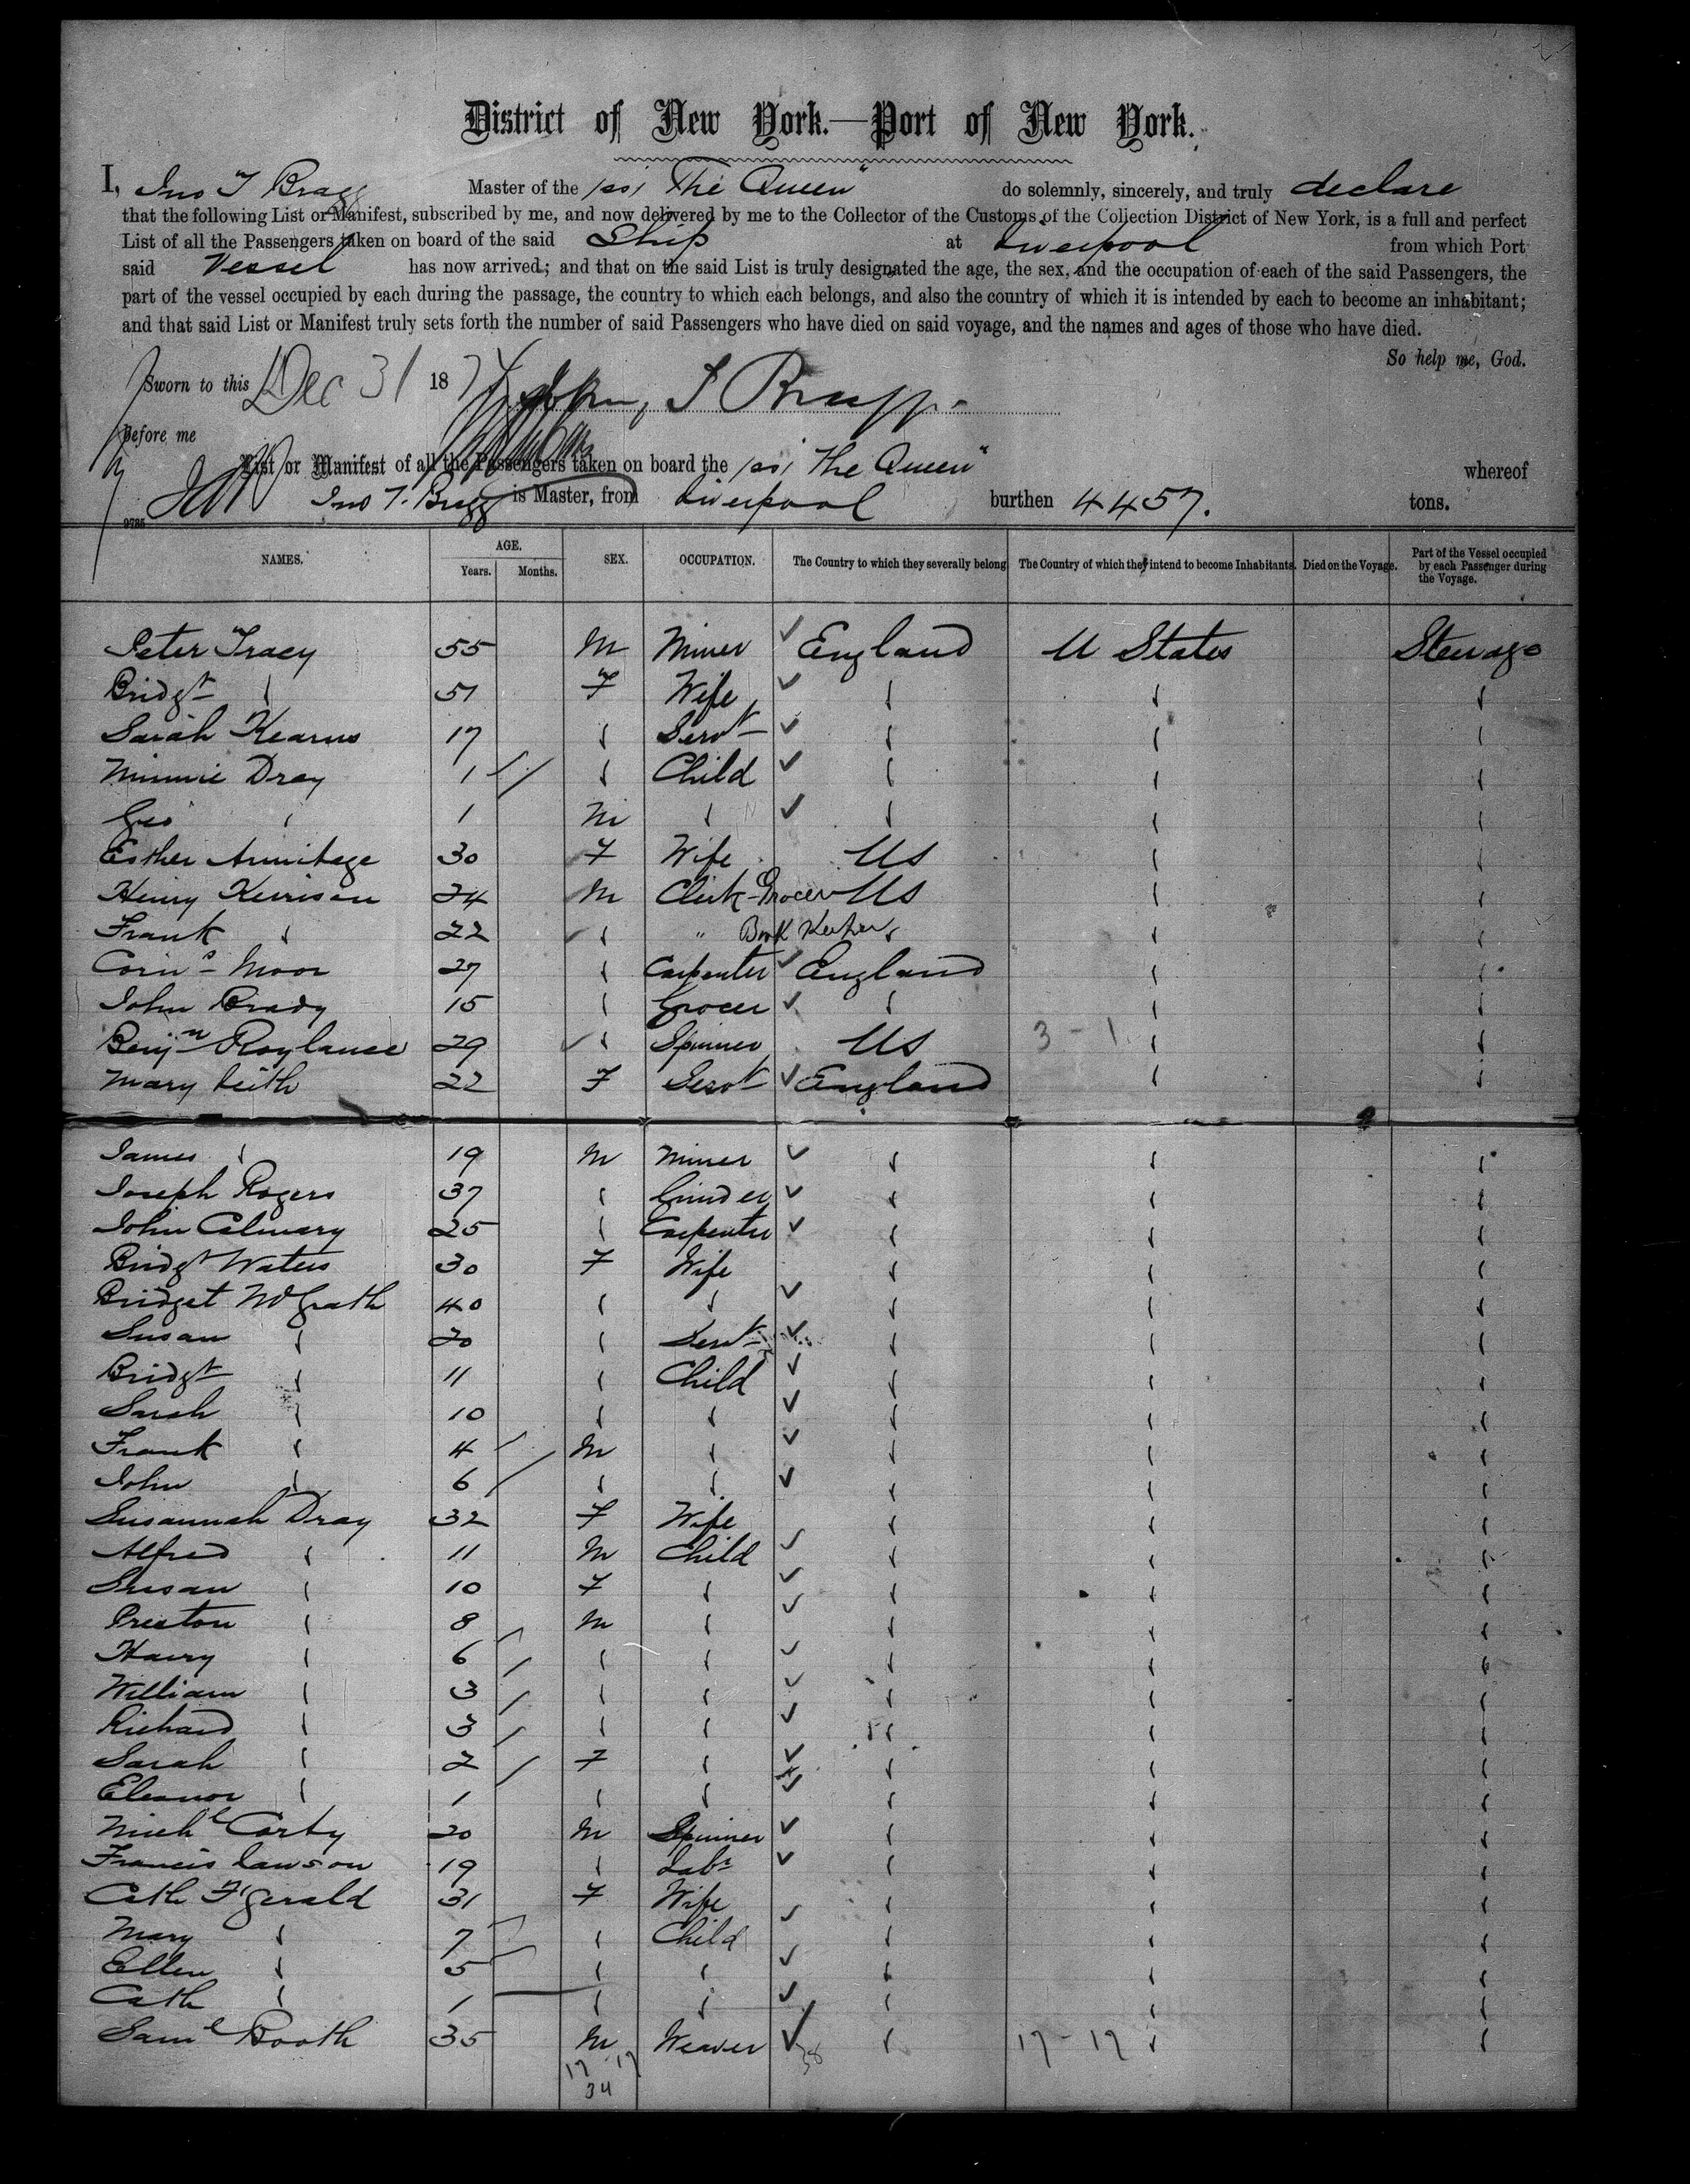 District of New York.—Port of New York.
I, Jno T Bragg Master of the "The Queen" do solemnly, sincerely, and truly declare
that the following List or Manifest, subscribed by me, and now delivered by me to the Collector of the Customs of the Collection District of New York, is a full and perfect
List of all the Passengers taken on board of the said Ship at Liverpool from which Port
said Vessel has now arrived; and that on the said List is truly designated the age, the sex, and the occupation of each of the said Passengers, the
part of the vessel occupied by each during the passage, the country to which each belongs, and also the country of which it is intended by each to become an inhabitant;
and that said List or Manifest truly sets forth the number of said Passengers who have died on said voyage, and the names and ages of those who have died.
So help me, God.
Sworn to this Dec 31 1874 John T Bragg
Before me
List or Manifest of all the Passengers taken on board the "The Queen" whereof
Jno T. Bragg is Master, from Liverpool burthen 4457. tons.
9785
NAMES. AGE. SEX. OCCUPATION. The Country to which they severally belong The Country of which they intend to become Inhabitants. Died on the Voyage. Part of the Vessel occupied by each Passenger during the Voyage.
Years. Months.
Peter Tracy 55 M Miner England U States Steerage
Bridgt 51 F Wife
Sarah Kearns 17 Servt
Minnie Dray 1 Child
Geo 1 M
Esther Armitage 30 F Wife US
Henry Kerrison 24 M Clerk-Grocer US
Frank 22 " Book Keeper
Corns Moor 27 Carpenter England
John Brady 15 Grocer
Benjn Roylance 29 Spinner US 3 - 1
Mary Leith 22 F Servt England
James 19 M Miner
Joseph Rogers 37 Grinder
John Calmary 25 Carpenter
Bridgt Waters 30 F Wife
Bridget McGrath 40
Susan 20 Servt
Bridgt 11 Child
Sarah 10
Frank 4 M
John 6
Susannah Dray 32 F Wife
Alfred 11 M Child
Susan 10 F
Preston 8 M
Harry 6
William 3
Richard 3
Sarah 2 F
Eleanor 1
Michl Corby 20 M Spinner
Francis Lawson 19 Labr
Cath F'gerald 31 F Wife
Mary 7 Child
Ellen 5
Cath 1
Saml Booth 35 M Weaver 17 - 17
17 17 38
34